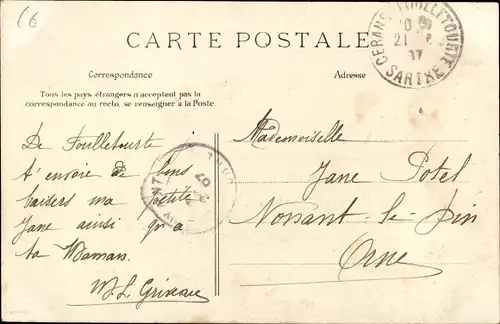 CE
CARTE POSTALE
CERANS-FOULLETOURTE
21
SARTHE
Correspondance
Adresse
Tous les pays étrangers n'acceptent pas la
correspondance au recto, se renseigner à la Poste.
De Foulletourte je
t'envoie de bons
baisers ma petite
Jane ainsi qu'a
ta Maman.
Mademoiselle
Jane Potel
Nonant-le-Pin
Orne
07
ORNE